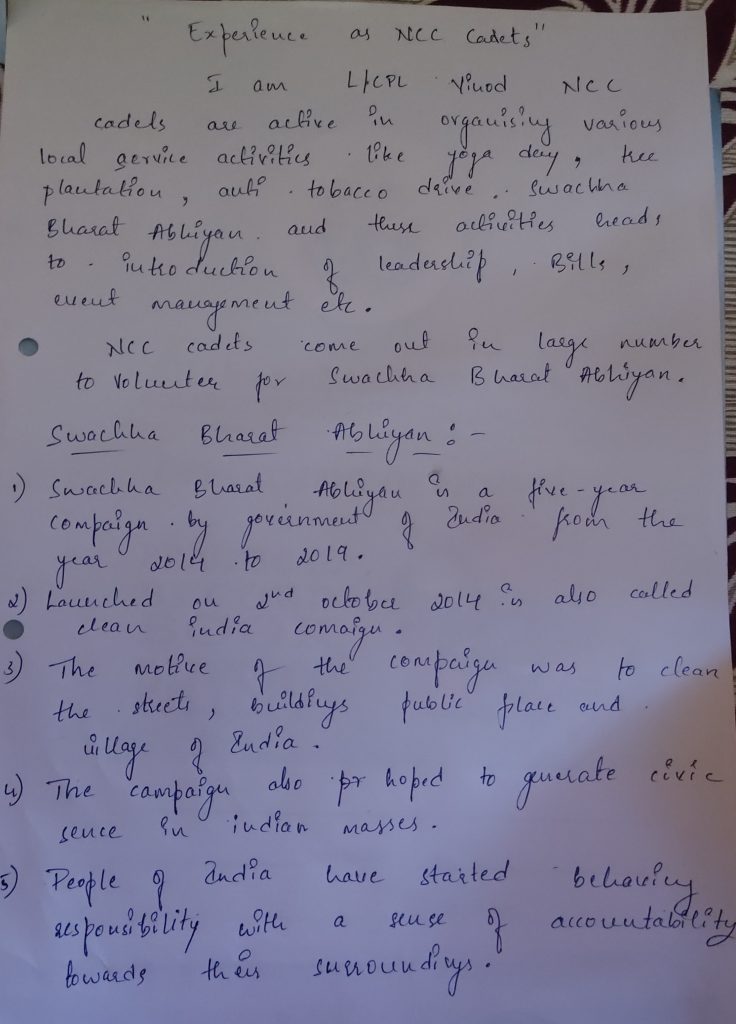 "Experience as NCC Cadets"
I am L/CPL Vinod NCC
cadets are active in organising various
local service activities like yoga day, tree
plantation, anti tobacco drive, Swachha
Bharat Abhiyan. and these activities heads
to introduction of leadership, Bills,
event management etc.
NCC cadets come out in large number
to volunter for Swachha Bharat Abhiyan.
Swachha Bharat Abhiyan :-
1) Swachha Bharat Abhiyan is a five-year
compaign by government of India from the
year 2014 to 2019.
2) Launched on 2nd october 2014 is also called
clean india comaign.
3) The motive of the compaign was to clean
the streets, buildings public place and
village of India.
4) The campaign also pr hoped to generate civic
sence in indian masses.
5) People of India have started behaving
responsibility with a sense of accountability
towards their surroundings.